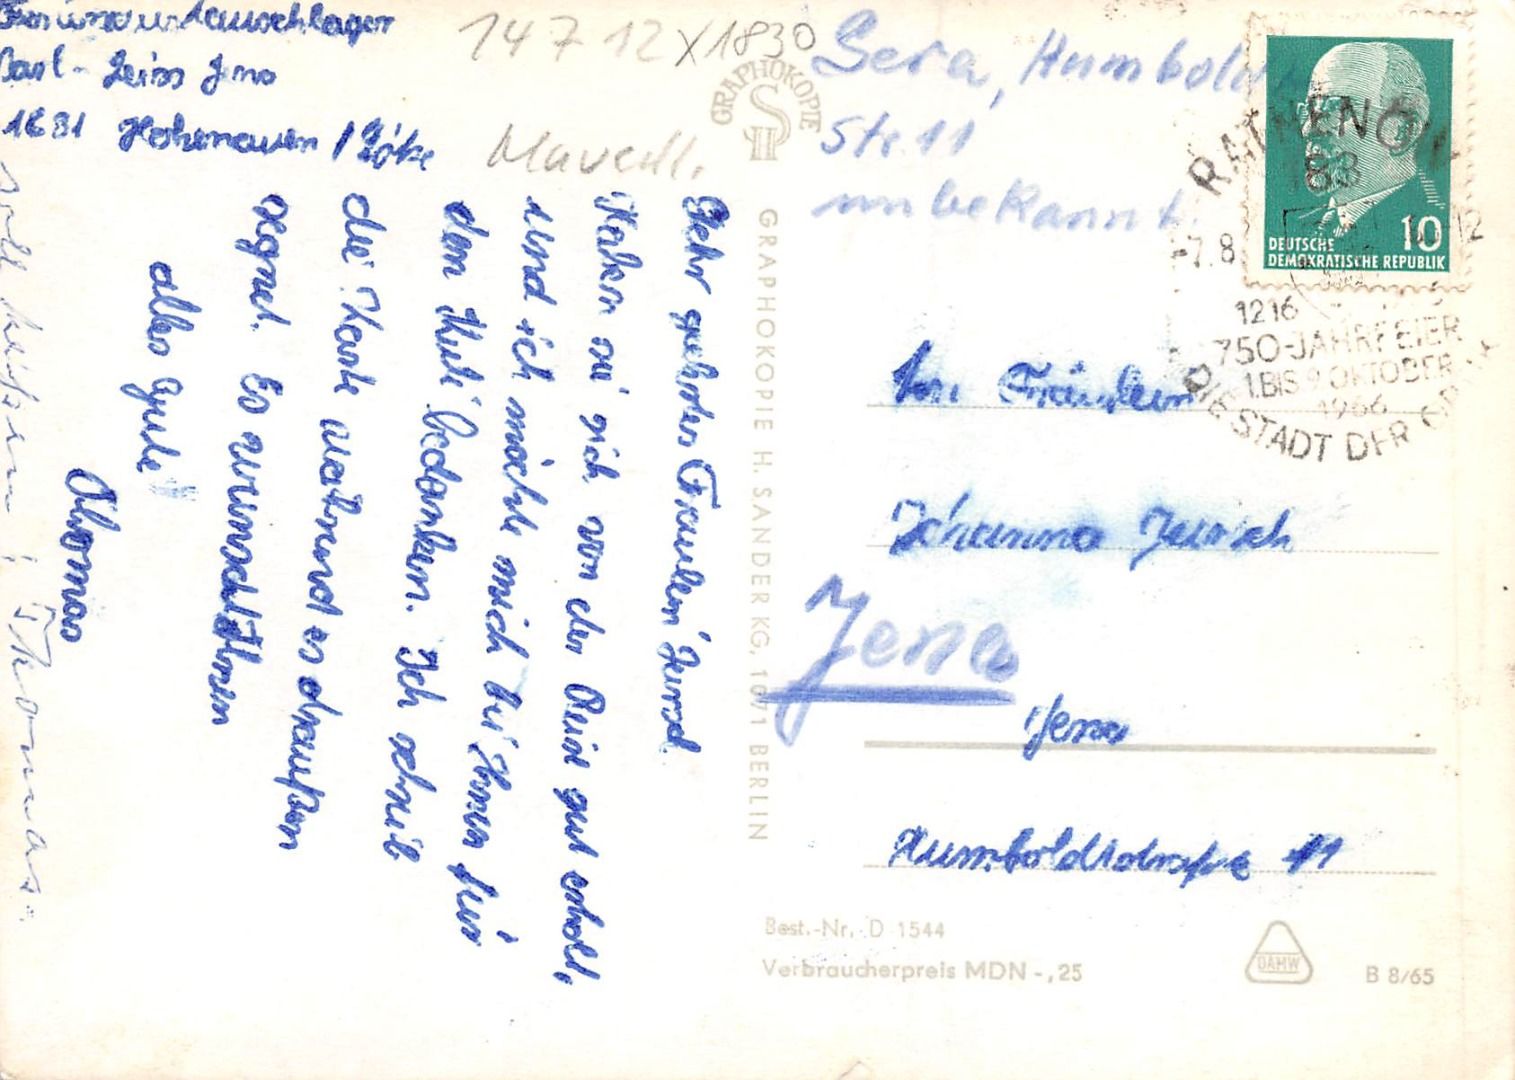 Carl-Zeiss Jena
1831 Hohenauen /
147 12 x 1830
Gera, Humboldt
Str 11
unbekannt.
GRAPHOKOPIE
H S
RATHENOW
183
-7.8
12
1216
750-JAHRFEIER
1.BIS 9 OKTOBER
1966
DIE STADT DER
10
DEUTSCHE
DEMOKRATISCHE REPUBLIK
Sehr geehrtes Fräulein
Haben sie sich von der Reise gut erholt,
und ich möchte mich bei Ihnen für
den Hut bedanken. Ich schreib
die Karte während es draußen
regnet. Es wünscht Ihnen
alles Gute!
Thomas
soll heißen: Thomas.
GRAPHOKOPIE H. SANDER KG, 1071 BERLIN
An Fräulein
Johanna
Jena
Jena
Humboldtstraße 11
Best.-Nr. D 1544
Verbraucherpreis MDN -,25
DAMW
B 8/65